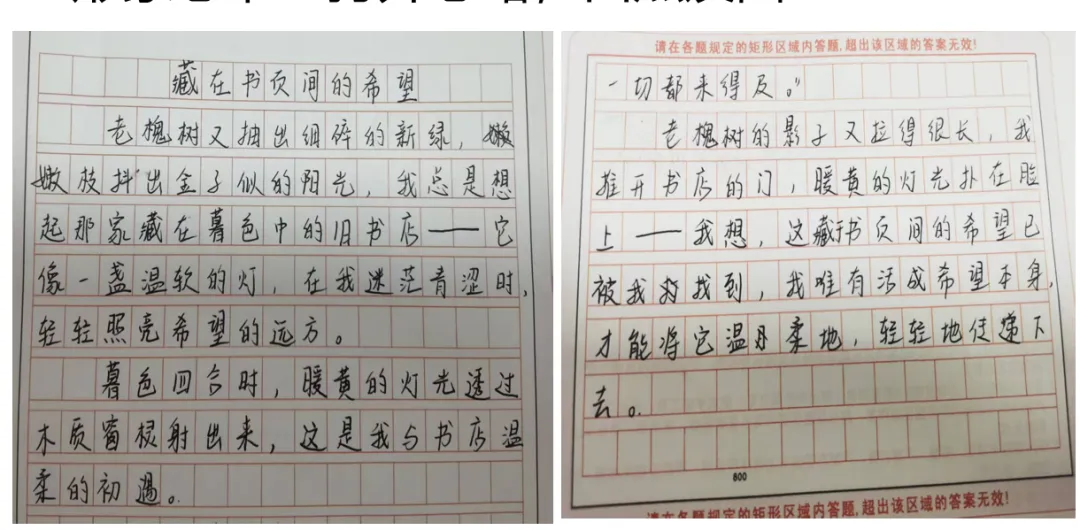 藏在书页间的希望
老槐树又抽出细碎的新绿，嫩
嫩枝抖出金子似的阳光，我总是想
起那家藏在暮色中的旧书店——它
像一盏温软的灯，在我迷茫青涩时，
轻轻照亮希望的远方。
暮色四合时，暖黄的灯光透过
木质窗棂射出来，这是我与书店温
柔的初遇。
请在各题规定的矩形区域内答题,超出该区域的答案无效!
一切都来得及。”
老槐树的影子又拉得很长，我
推开书店的门，暖黄的灯光扑在脸
上——我想，这藏于书页间的希望已
被我找到，我唯有活成希望本身，
才能将它温柔地，轻轻地传递下
去。
600
请在各题规定的矩形区域内答题,超出该区域的答案无效!